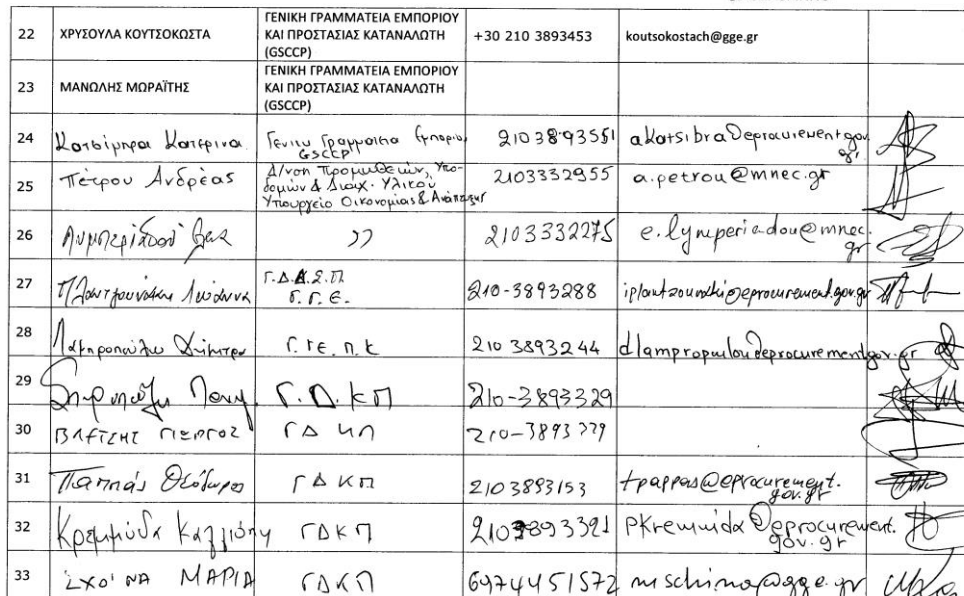 22 ΧΡΥΣΟΥΛΑ ΚΟΥΤΣΟΚΩΣΤΑ ΓΕΝΙΚΗ ΓΡΑΜΜΑΤΕΙΑ ΕΜΠΟΡΙΟΥ ΚΑΙ ΠΡΟΣΤΑΣΙΑΣ ΚΑΤΑΝΑΛΩΤΗ (GSCCP) +30 210 3893453 koutsokostach@gge.gr
23 ΜΑΝΩΛΗΣ ΜΩΡΑΪΤΗΣ ΓΕΝΙΚΗ ΓΡΑΜΜΑΤΕΙΑ ΕΜΠΟΡΙΟΥ ΚΑΙ ΠΡΟΣΤΑΣΙΑΣ ΚΑΤΑΝΑΛΩΤΗ (GSCCP)
24 Κατσίμπρα Κατερίνα Γενική Γραμματεία Εμπορίου GSCCP 2103893551 akatsibra@eprocurement.gov.gr
25 Πέτρου Ανδρέας Δ/νση Προμηθειών, Υποδομών & Διαχ. Υλικού Υπουργείο Οικονομίας & Ανάπτυξης 2103332955 a.petrou@mnec.gr
26 Λυμπεριάδου " 2103332275 e.lymperiadou@mnec.gr
27 Πλαντζουνάκη Ιωάννα Γ.Δ.Δ.Σ.Π. Γ.Γ.Ε. 210-3893288 iplantzounaki@eprocurement.gov.gr
28 Λαμπροπούλου Δήμητρα Γ.ΓΕ.Π.Κ 210 3893244 dlampropoulou@eprocurement.gov.gr
29 Γ.Δ.ΚΠ 210-3893329
30 ΓΙΩΡΓΟΣ ΓΔ ΚΠ 210-3893
31 Παππάς Θεόδωρος ΓΔ ΚΠ 2103893153 tpappas@eprocurement.gov.gr
32 Κρεμμύδα Καλλιόπη ΓΔΚΠ 2103893321 pkremmida@eprocurement.gov.gr
33 ΣΧΟΙΝΑ ΜΑΡΙΑ ΓΔΚΠ 6974451572 mschina@gge.gr